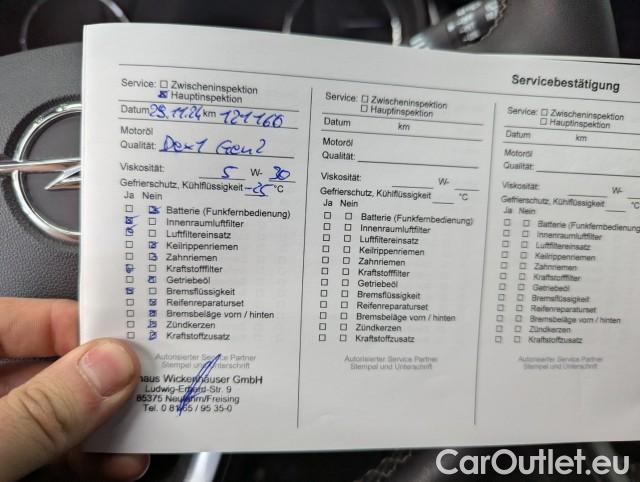 Servicebestätigung
Service: Zwischeninspektion
Hauptinspektion
Datum 29.11.24 km 121160
Motoröl
Qualität: Dex1 Gen2
Viskosität: 5 W- 30
Gefrierschutz, Kühlflüssigkeit -25 °C
Ja Nein
Batterie (Funkfernbedienung)
Innenraumluftfilter
Luftfiltereinsatz
Keilrippenriemen
Zahnriemen
Kraftstofffilter
Getriebeöl
Bremsflüssigkeit
Reifenreparaturset
Bremsbeläge vorn / hinten
Zündkerzen
Kraftstoffzusatz
Autorisierter Service Partner
Stempel und Unterschrift
haus Wickenhäuser GmbH
Ludwig-Erhard-Str. 9
85375 Neufahrn/Freising
Tel. 0 81 65 / 95 35-0
Service: Zwischeninspektion
Hauptinspektion
Datum km
Motoröl
Qualität:
Viskosität: W-
Gefrierschutz, Kühlflüssigkeit °C
Ja Nein
Batterie (Funkfernbedienung)
Innenraumluftfilter
Luftfiltereinsatz
Keilrippenriemen
Zahnriemen
Kraftstofffilter
Getriebeöl
Bremsflüssigkeit
Reifenreparaturset
Bremsbeläge vorn / hinten
Zündkerzen
Kraftstoffzusatz
Autorisierter Service Partner
Stempel und Unterschrift
Service: Zwischeninspektion
Hauptinspektion
Datum km
Motoröl
Qualität:
Viskosität: W-
Gefrierschutz, Kühlflüssigkeit
Ja Nein
Batterie (Funkfernbedienung)
Innenraumluftfilter
Luftfiltereinsatz
Keilrippenriemen
Zahnriemen
Kraftstofffilter
Getriebeöl
Bremsflüssigkeit
Reifenreparaturset
Bremsbeläge vorn / hinten
Zündkerzen
Kraftstoffzusatz
Autorisierter Service Partner
Stempel und Unterschrift
CarOutlet.eu